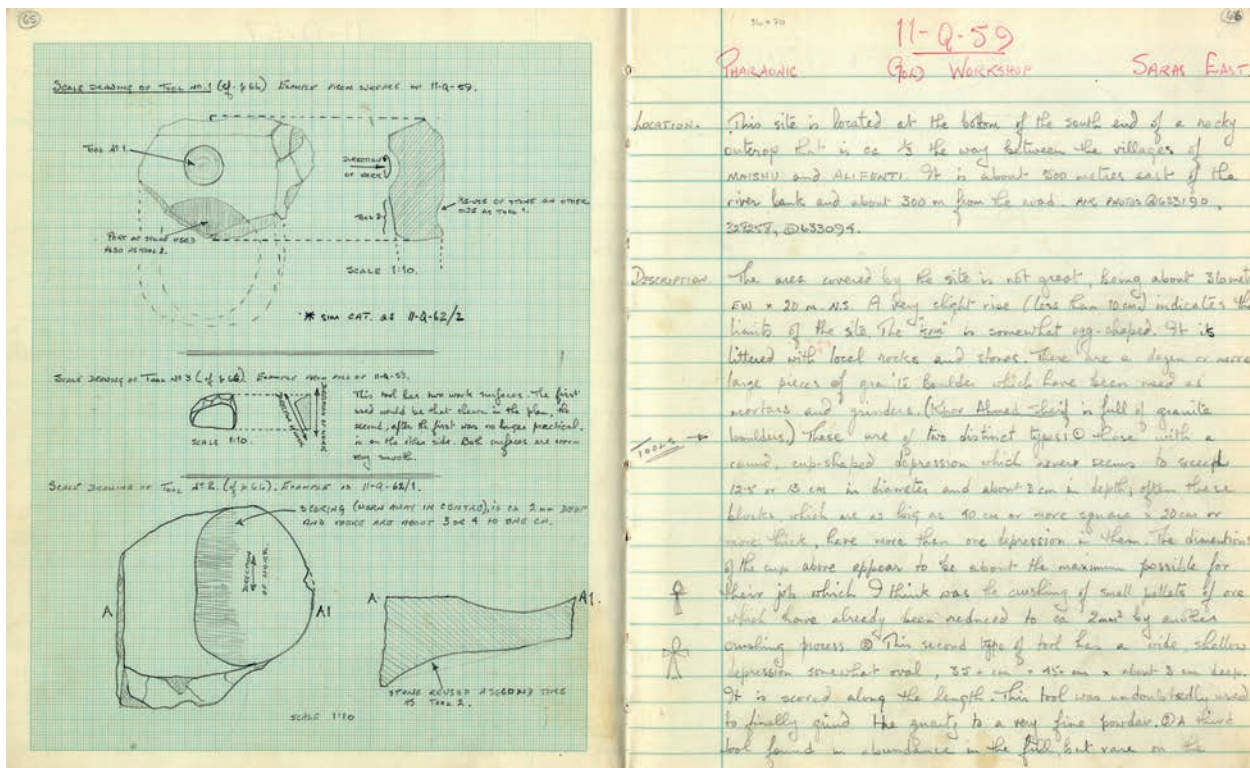 65
SCALE DRAWING OF TOOL NO. 1 (cf. p 66) EXAMPLE FROM SURFACE OF 11-Q-59.
TOOL Nº 1.
DIRECTION
OF WORK
TOOL 2
RE-USE OF STONE ON OTHER
SIDE AS TOOL 1.
PART OF STONE USED
ALSO AS TOOL 2.
SCALE 1:10.
* SIM CAT. AS 11-Q-62/2
SCALE DRAWING OF TOOL Nº 3 (cf p 66) EXAMPLE FROM FILL OF 11-Q-59.
This tool has two work surfaces. The first
used would be that shown in the plan, the
second, after the first was no longer practical,
is on the other side. Both surfaces are worn
very smooth.
DIRECTION OF WORK
DIRECTION OF WORK
SCALE 1:10.
SCALE DRAWING OF TOOL Nº 2. (cf p 66). EXAMPLE IS 11-Q-62/1.
SCORING (WORN AWAY IN CENTRE), IS ca 2 mm DEEP
AND MARKS ARE ABOUT 3 OR 4 TO ONE CM.
DIRECTION
OF WORK
A
A1
A
A1.
STONE REUSED A SECOND TIME
AS TOOL 2.
SCALE 1:10
36 x 20
66
11-Q-59
PHARAONIC GOLD WORKSHOP SARAS EAST
LOCATION. This site is located at the bottom of the south end of a rocky
outcrop that is ca ⅓ the way between the villages of
MAISHU and ALIFENTI. It is about 500 metres east of the
river bank and about 300 m from the road. AIR PHOTOS @633190,
328258, @633094.
DESCRIPTION. The area covered by the site is not great, being about 36 met
EW x 20 m. N.S. A very slight rise (less than 10 cm) indicates the
limits of the site. The "kom" is somewhat egg-shaped. It is
littered with local rocks and stones. There are a dozen or more
large pieces of granite boulder which have been used as
mortars and grinders. (Khor Ahmed Sherif is full of granite
boulders.) These are of two distinct types: ① those with a
TOOLS →
round, cup-shaped depression which never seems to exceed
12.5 or 13 cm in diameter and about 2 cm in depth; often these
blocks, which are as big as 40 cm or more square x 20 cm or
more thick, have more than one depression in them. The dimentions
of the cup above appear to be about the maximum possible for
their job which I think was the crushing of small pellets of ore
which have already been reduced to ca 2mm² by another
crushing process. ② This second type of tool has a wide, shallow
depression somewhat oval, 35+ cm x 45+ cm x about 3 cm deep.
It is scored along the length. This tool was undoubtedly used
to finally grind the quartz to a very fine powder. ③ A third
tool found in abundance in the fill, but rare on the